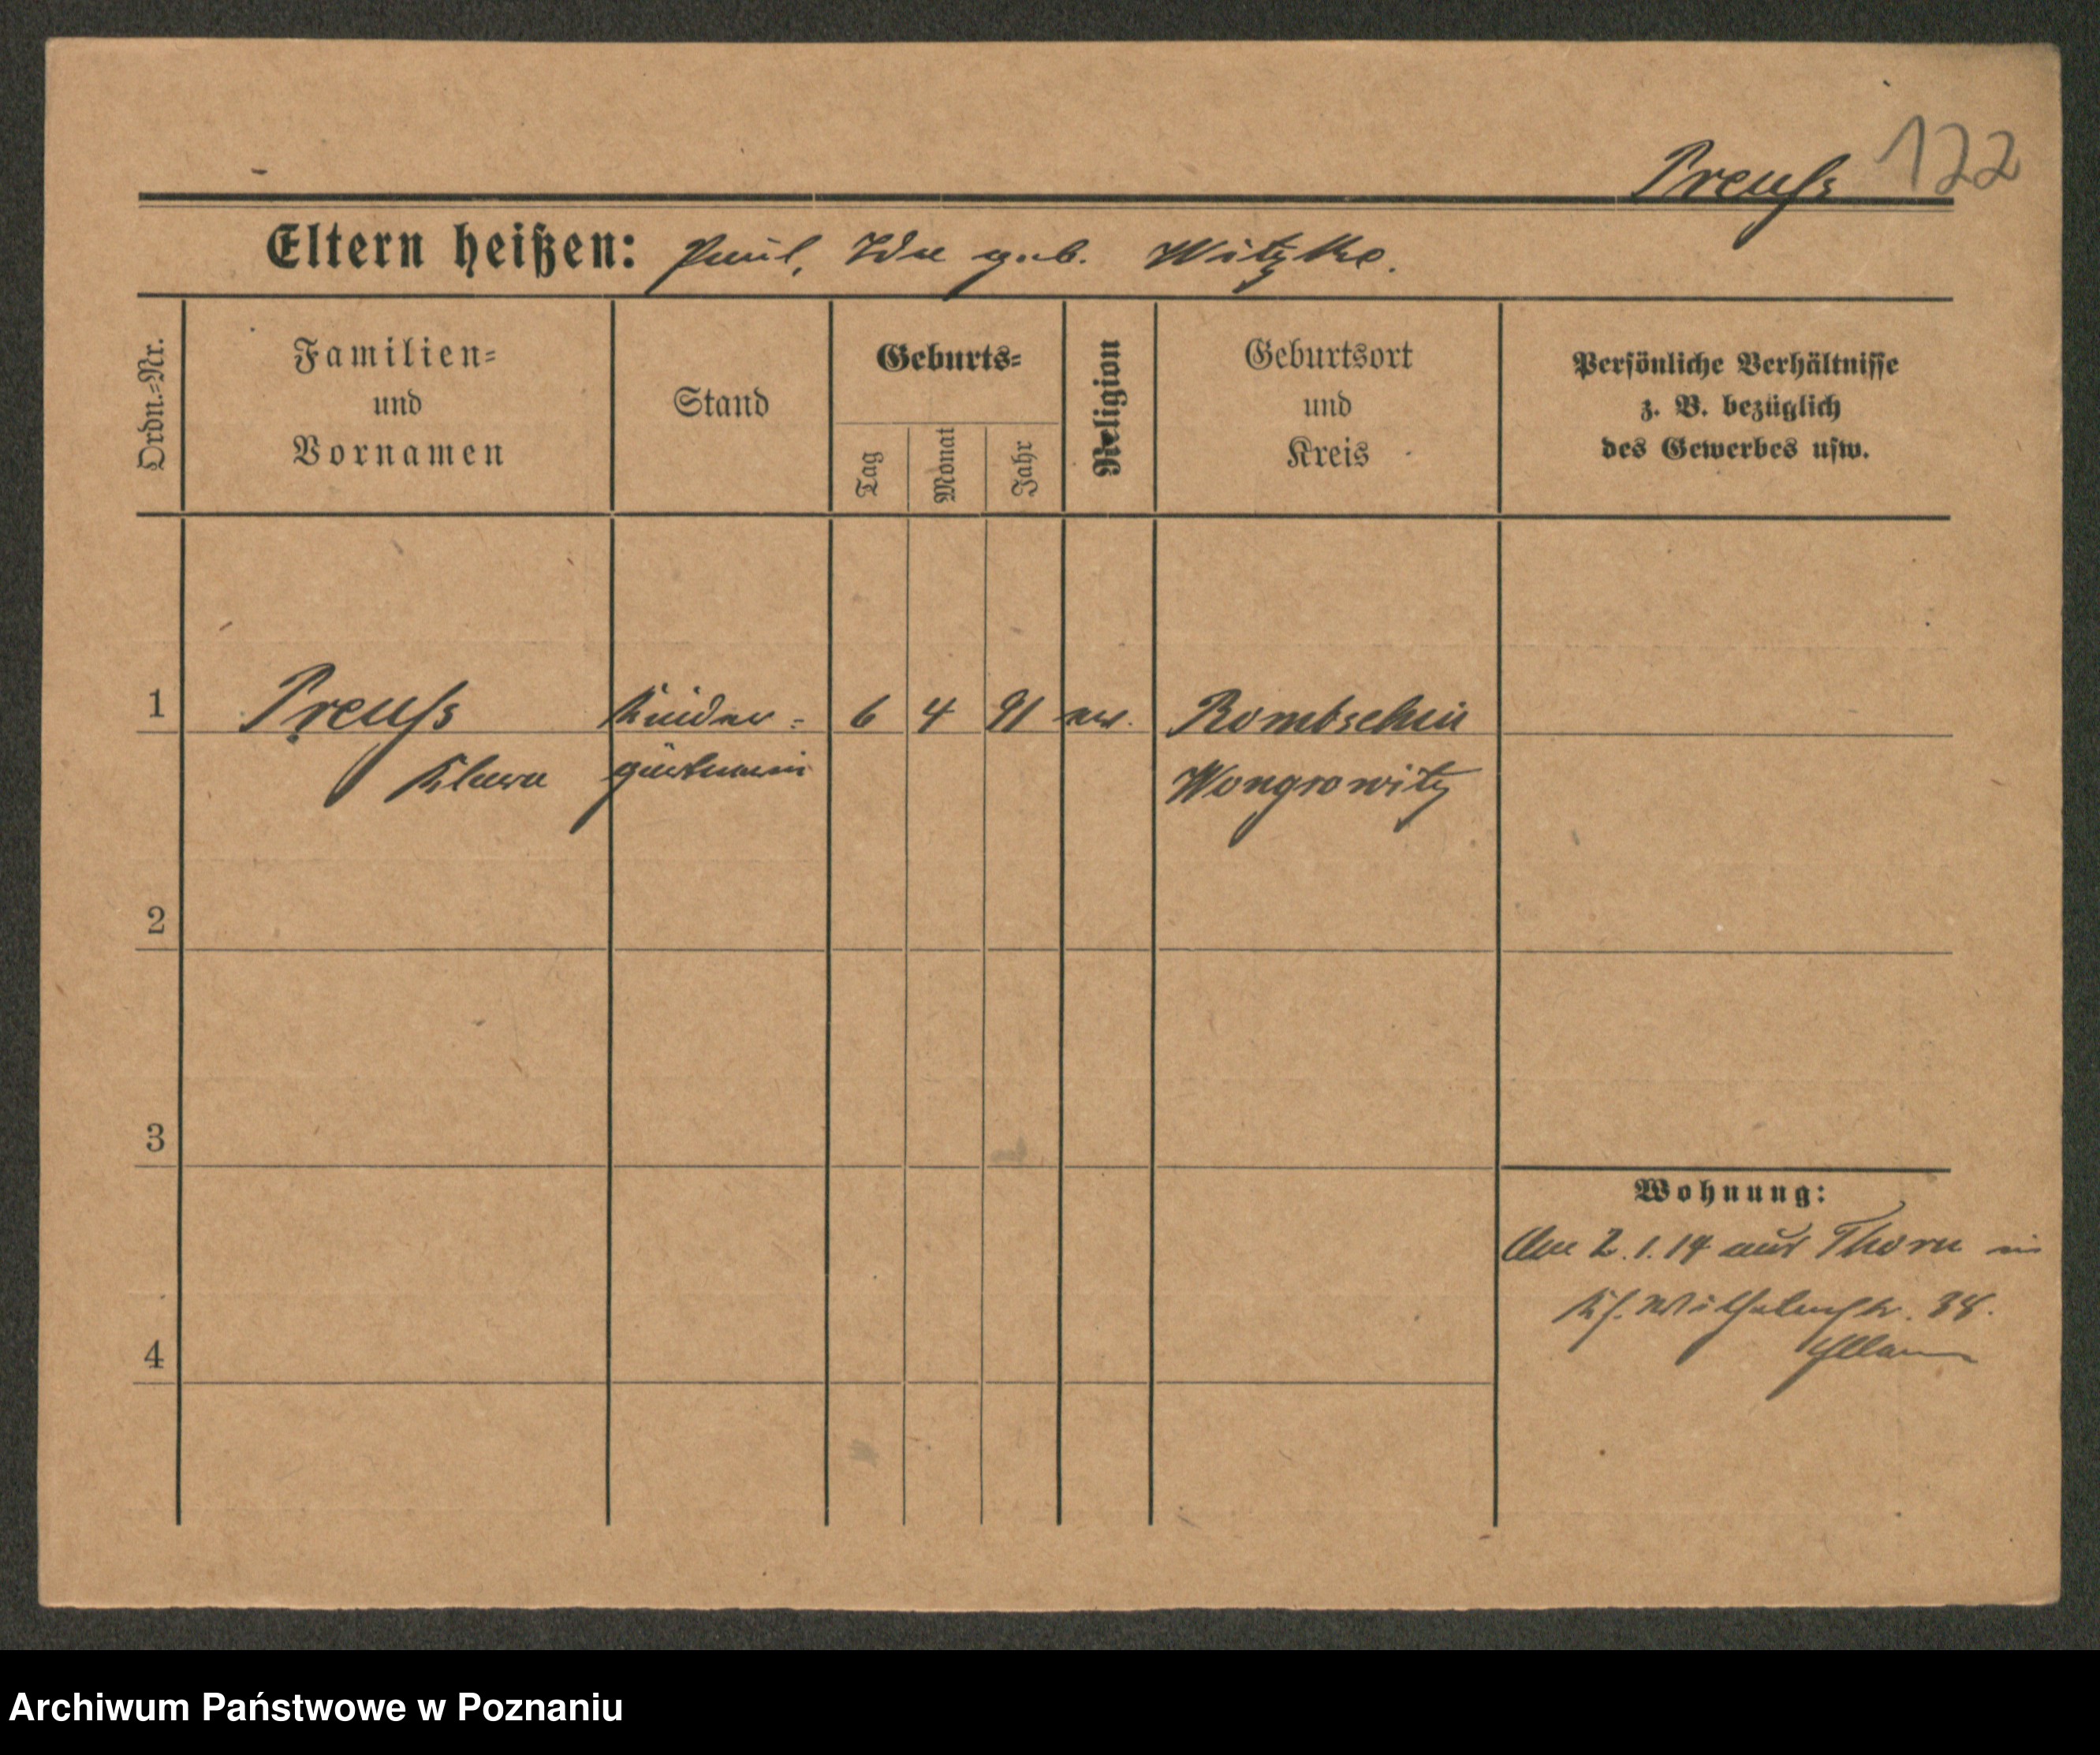 Preuß 122
Eltern heißen: Paul, Ida geb. Witzke.
Ordn.=Nr.
Familien=
und
Vornamen
Stand
Geburts=
Tag
Monat
Jahr
Religion
Geburtsort
und
Kreis
Persönliche Verhältnisse
z. B. bezüglich
des Gewerbes usw.
1 Preuß Kinder= 6 4 91 ev. Rombschin
Klara gärtnerin Wongrowitz
2
3
Wohnung:
Am 2.1.14 aus Thorn in
Ks. Wilhelmstr. 38.
4
Archiwum Państwowe w Poznaniu